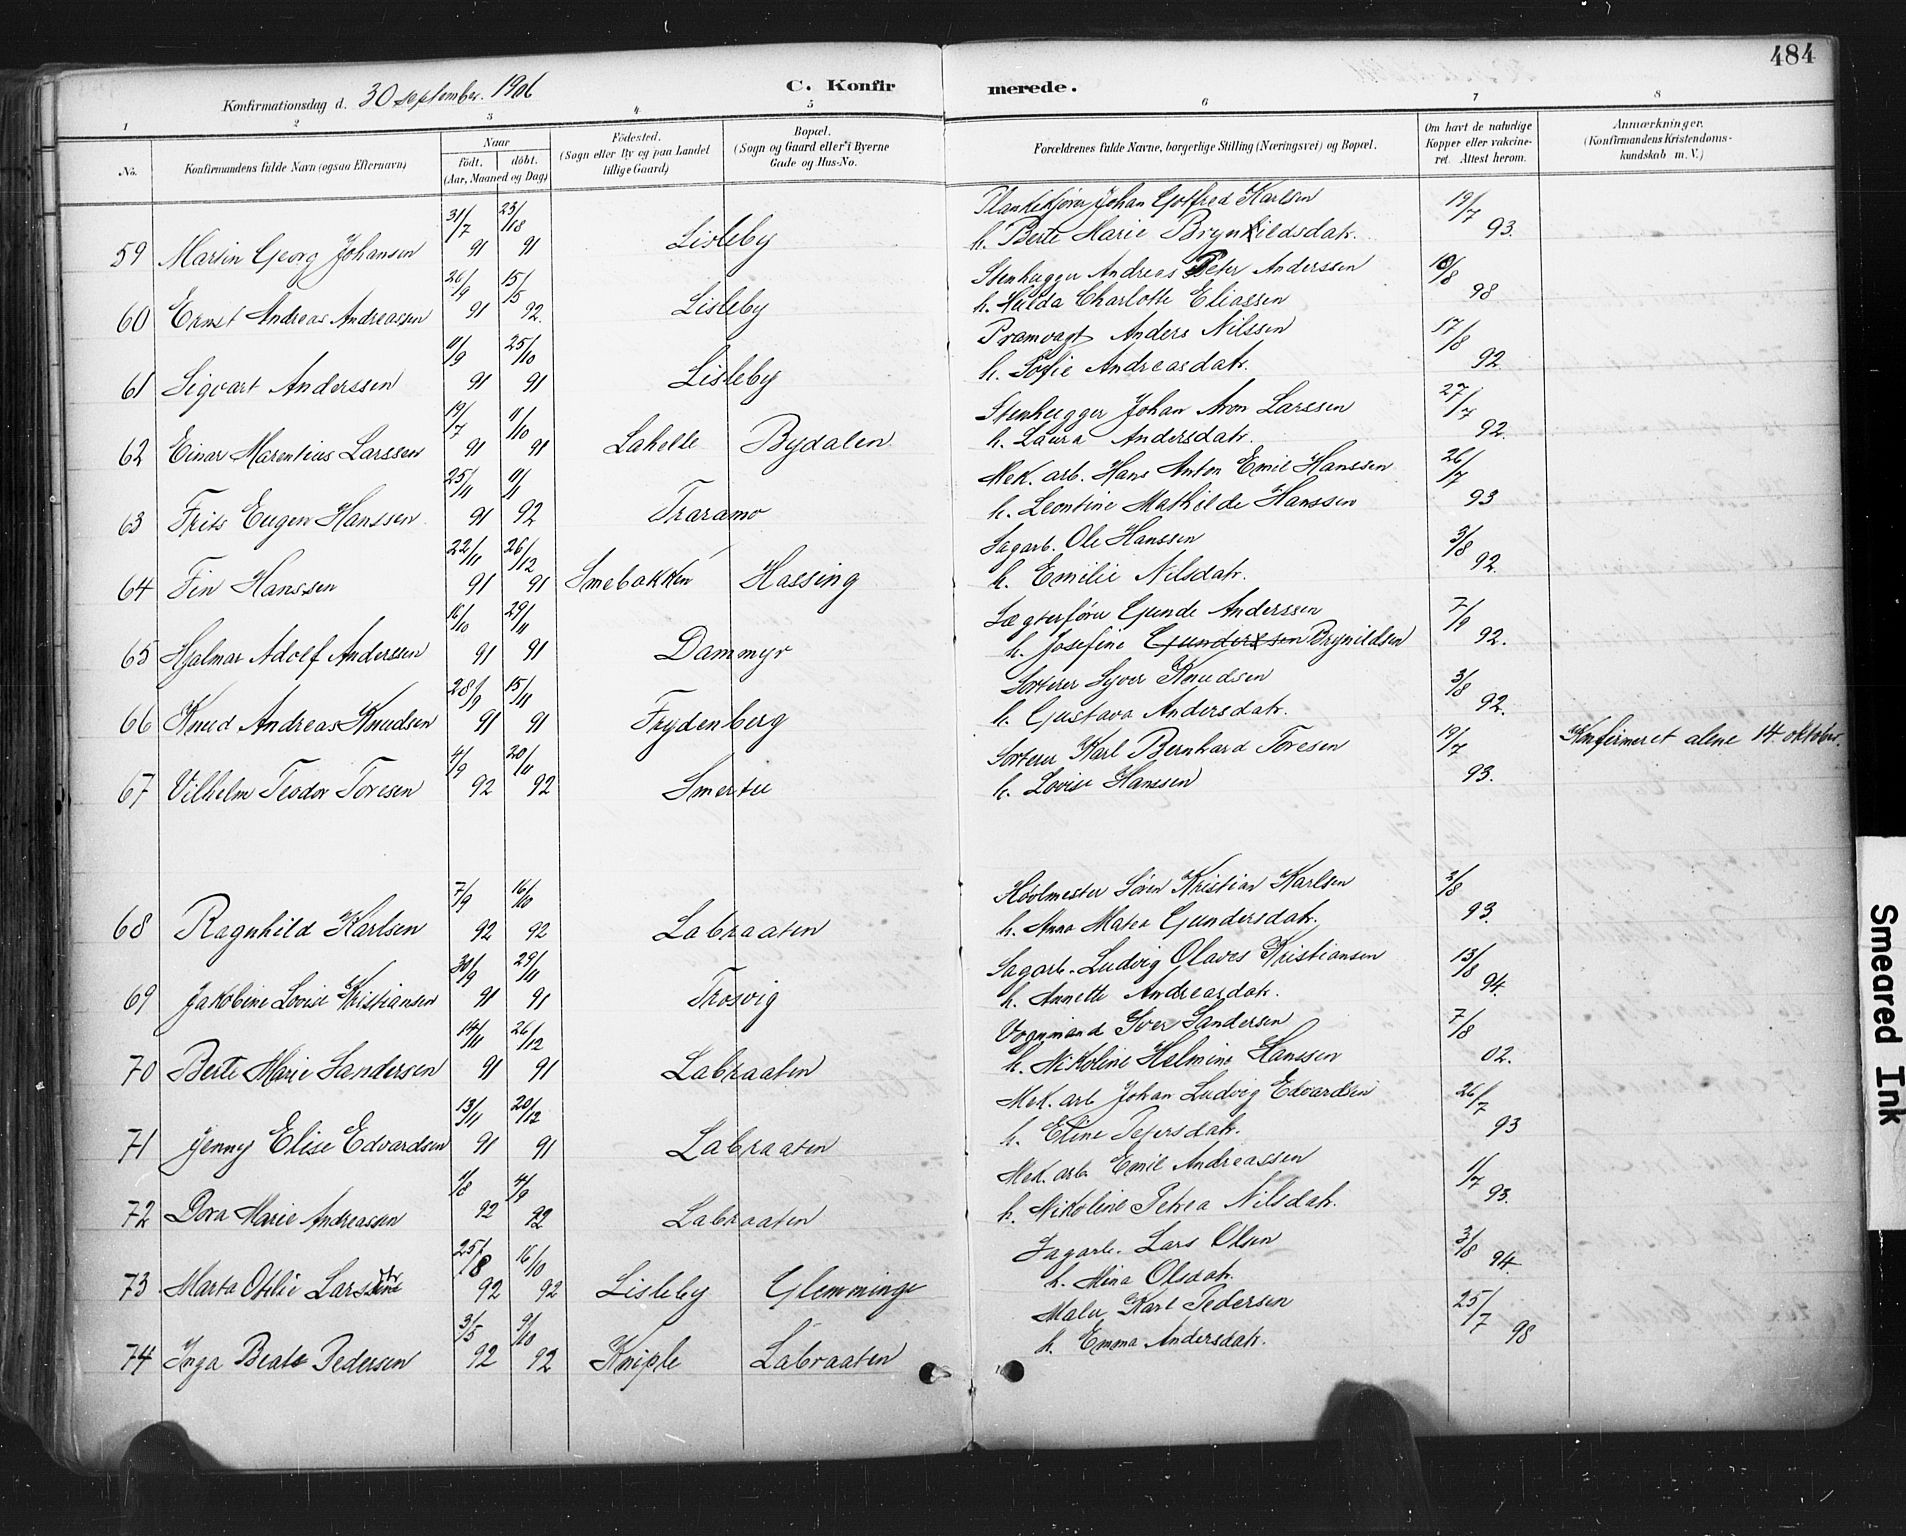 484
Konfirmationsdag d. 30 september. 1906
C. Konfirmerede.
1 2 3 4 5 6 7 8
No.
Konfirmandens fulde Navn (ogsaa Efternavn)
Naar
födt. döbt.
(Aar, Maaned og Dag)
Födested.
(Sogn eller By og paa Landet
tillige Gaard)
Bopæl.
(Sogn og Gaard eller i Byerne
Gade og Hus-No.
Forældrenes fulde Navne, borgerlige Stilling (Næringsvei) og Bopæl.
Om havt de naturlige
Kopper eller vakcine-
ret. Attest herom.
Anmærkninger.
(Konfirmandens Kristendoms-
kundskab m. V.)
31/7 23/18 Plankekjörer Johan Gotfred Karlsen 19/7
59 Martin Georg Johansen 91 91 Lisleby h. Berte Marie Brynildsdatr. 93.
26/9 15/5 Stenhugger Andreas Peter Anderssen 18/8
60 Ernst Andreas Andreassen 91 92. Lisleby h. Hulda Charlotte Eliassen 98
11/9 25/10 Pramvagt Anders Nilssen 17/8
61 Sigvart Anderssen 91 91 Lisleby h. Sofie Andreasdatr. 92
19/7 11/10 Stenhugger Johan Aron Larssen 27/7
62 Einar Marentius Larssen 91 91 Lahelle Bydalen h. Laura Andersdatr. 92.
25/11 11/1 Mek. arb. Hans Anton Emil Hanssen 26/7
63 Frits Eugen Hanssen 91 92 Traramo h. Leontine Mathilde Hanssen 93
22/11 26/12 Sagarb. Ole Hanssen 3/8
64 Fin Hanssen 91 91 Smebakken Hassing h. Emilie Nilsdatr. 92.
16/10 29/11 Lægterförer Gunde Anderssen 7/9
65 Hjalmar Adolf Anderssen 91 91 Dammyr h. Josefine Gunderssen Brynildsen 92.
28/9 15/11 Sorterer Syver Knudsen 3/8
66 Knud Andreas Knudsen 91 91 Frydenberg h. Gustava Andersdatr. 92.
4/9 20/11 Sorterer Karl Bernhard Toresen 19/7 Konfirmeret alene 14. oktober.
67 Vilhelm Teodor Toresen 92 92 Smertu h. Lovise Hanssen 93.
7/9 16/10 Skolmester Sören Kristian Karlsen 2/8
68 Ragnhild Karlsen 92 92 Labraaten h. Anna Matea Gundersdatr. 93.
30/9 29/11 Sagarb. Ludvig Olaves Kristiansen 13/8
69 Jakobine Lovise Kristiansen 91 91 Trosvig h. Annette Andreasdatr. 94.
14/11 26/12 Vognmand Iver Sandersen 7/8
70 Berte Marie Sandersen 91 91 Labraaten h. Nikoline Helmine Hanssen 02.
13/11 20/12 Mek. arb Johan Ludvig Edvardsen 26/7
71 Jenny Elise Edvardsen 91 91 Labraaten h. Eline Petersdatr. 93
1/8 4/9 Mek. arb Emil Andreassen 1/7
72 Dora Marie Andreassen 92 92 Labraaten h. Nikoline Petrea Nilsdatr. 93.
25/8 16/10 Sagarb. Lars Olsen 3/8
73 Marta Otilie 92 92 Lisleby Glemminge h. Mina Olsdatr. 94.
3/5 9/10 Maler Karl Pedersen 25/7
74 Inga Beate Pedersen 92 92 Kniple Labraaten h. Emma Andersdatr. 98
Smeared Ink